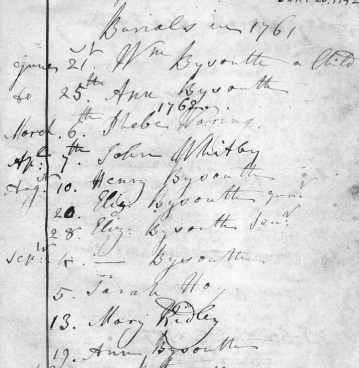 Burials in 1761
June 21st. Wm Bysouth a Child
do 25th. Ann Bysouth
1762.
March 6th. Phebe Waring.
Apl. 7th. John Whitby
Augt. 10. Henry Bysouth
20. Eliz: Bysouth junr.
28. Eliz: Bysouth Senr.
Sepr. 4. — Bysouth
5. Sarah
13. Mary Ridley
19. Ann Bysouth